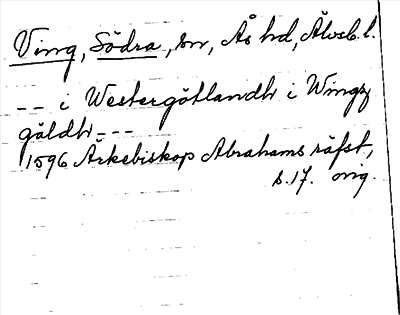 Ving, Södra, sn, Ås hd, Älvsb. l.
-- i Westergötlandh i Wingz
gäldh---
1596 Ärkebiskop Abrahams räfst,
s. 17. orig.